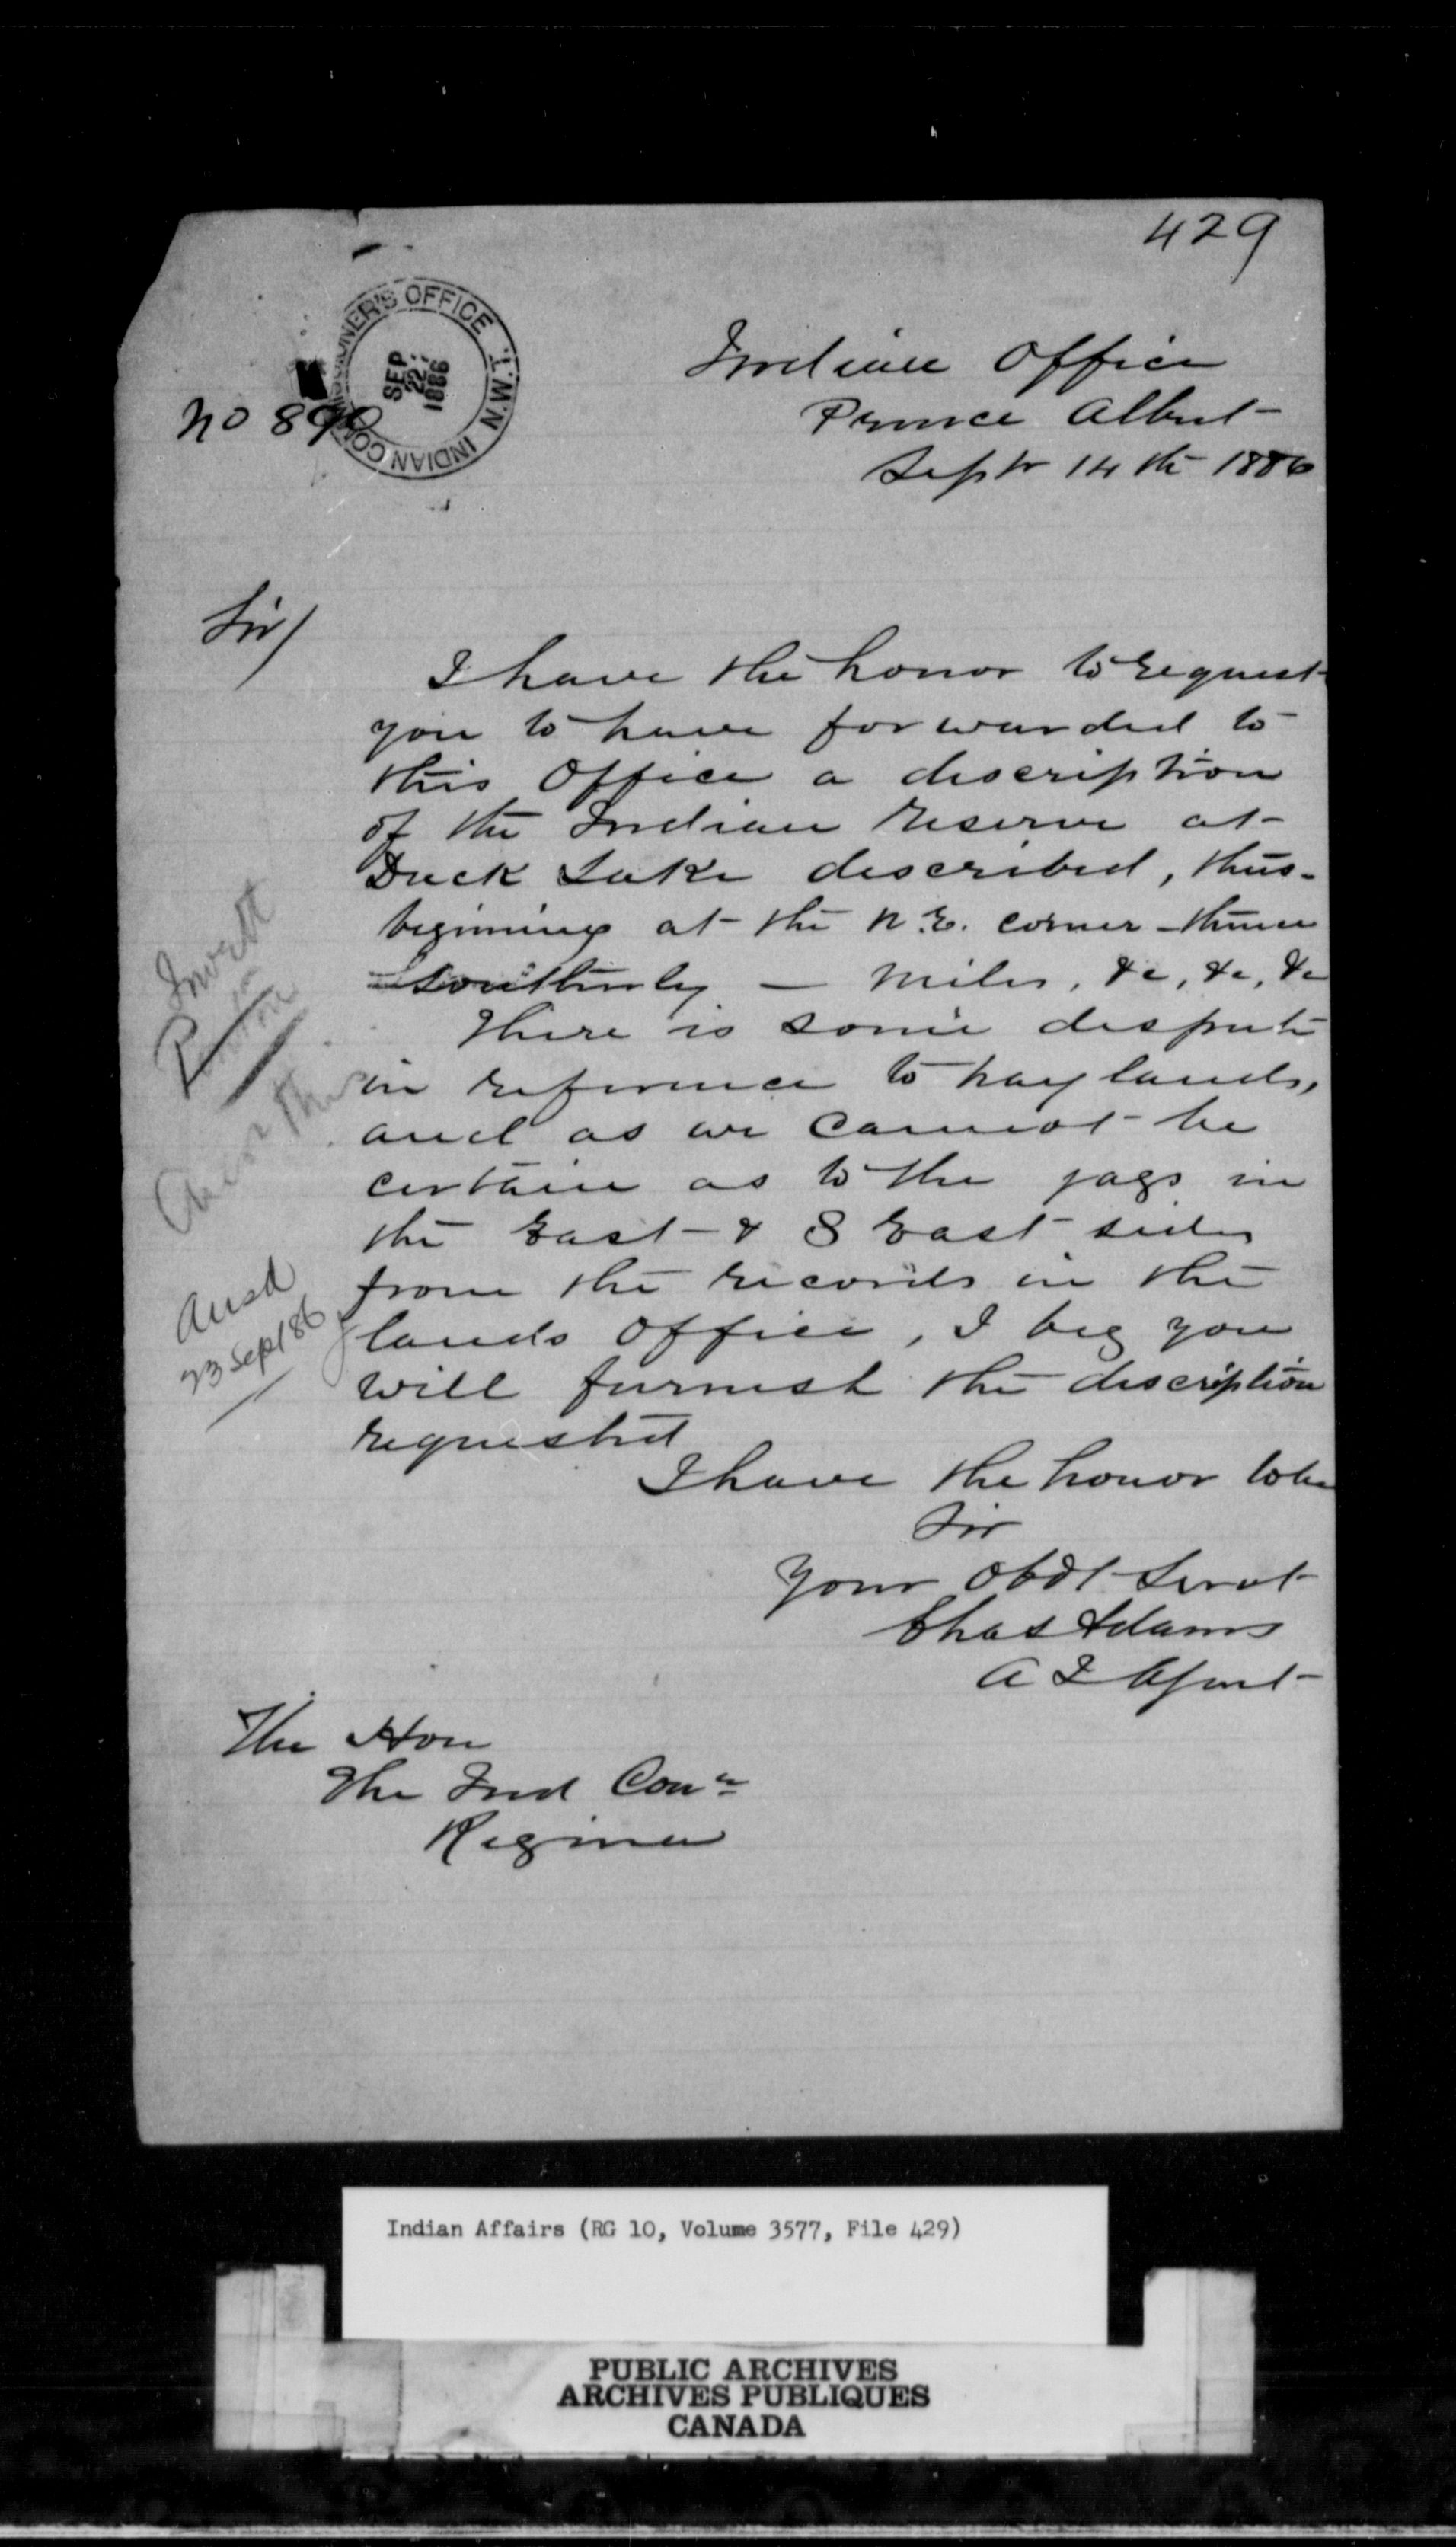 429
INDIAN COMMISSIONER'S OFFICE N.W.T.
SEP
22
1886
No 890
Indian Office
Prince Albert
Septr 14th 1886
Sir/
I have the honor to request
you to have forwarded to
this Office a discription
of the Indian Reserve at
Duck Lake described, thus-
begining at the N.E. corner - thence
Southerly — Miles, &c, &c, &c
There is some dispute
in reference to hay lands,
and as we cannot be
certain as to the jags in
the East & S East sides
from the records in the
lands Office, I beg you
will furnish the discription
requested
I have the honor to be
Sir
Your Obdt Servt
Chas Adams
A I Agent
Ansd
23 Sept/86
The Hon
The Ind Comr
Regina
Indian Affairs (RG 10, Volume 3577, File 429)
PUBLIC ARCHIVES
ARCHIVES PUBLIQUES
CANADA